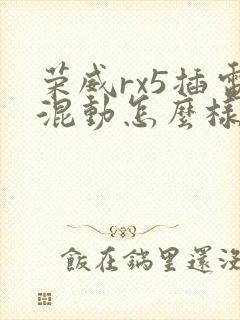 荣威rx5插電
混動怎麼樣
飯在鍋里還沒